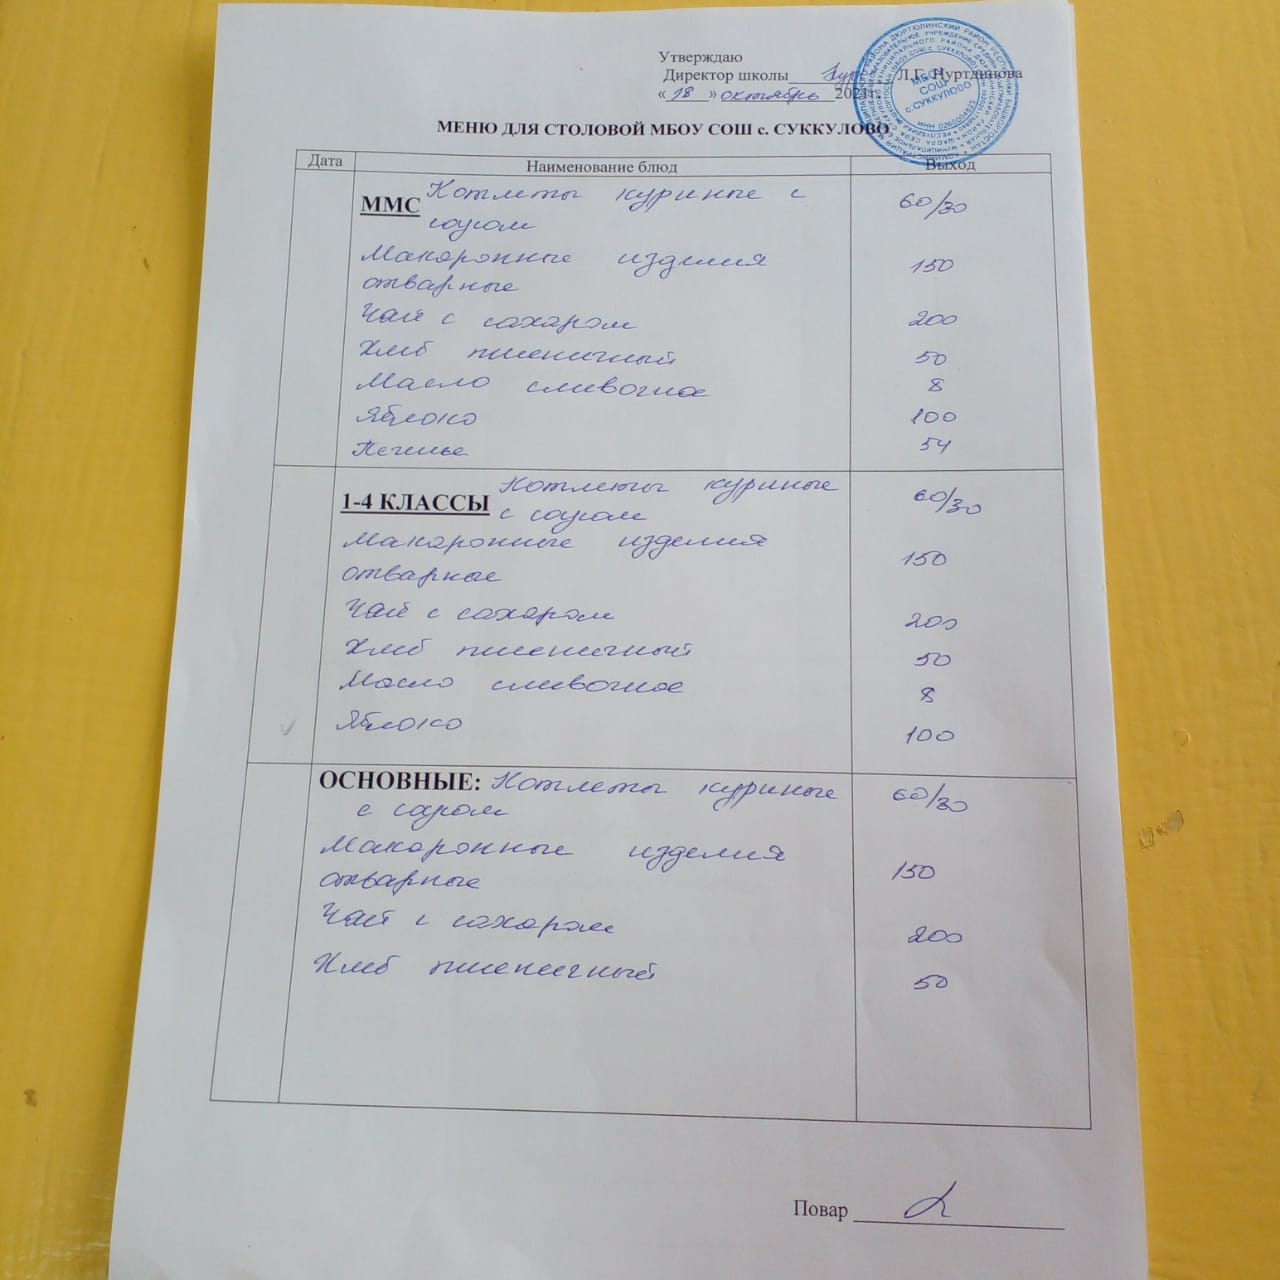 Утверждаю
Директор школы Л.Г. Нуртдинова
«18» октябрь 2021г.
МБОУ
СОШ
с. СУККУЛОВО
ИНН 0260004825
МЕНЮ ДЛЯ СТОЛОВОЙ МБОУ СОШ с. СУККУЛОВО
Дата Наименование блюд Выход
ММС Котлеты куриные с 60/30
соусом
Макаронные изделия 150
отварные
Чай с сахаром 200
Хлеб пшеничный 50
Масло сливочное 8
Яблоко 100
Печенье 54
1-4 КЛАССЫ Котлеты куриные 60/30
с соусом
Макаронные изделия 150
отварные
Чай с сахаром 200
Хлеб пшеничный 50
Масло сливочное 8
Яблоко 100
ОСНОВНЫЕ: Котлеты куриные 60/30
с соусом
Макаронные изделия 150
отварные
Чай с сахаром 200
Хлеб пшеничный 50
Повар